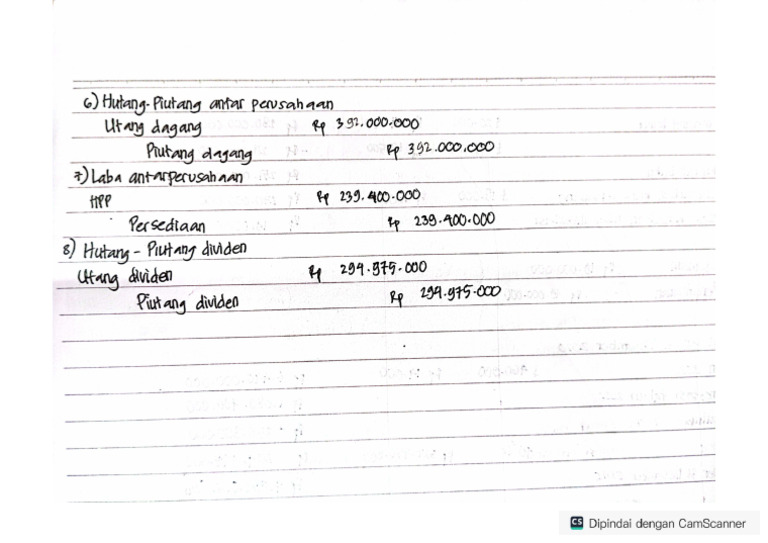 6) Hutang-Piutang antar perusahaan
Utang dagang Rp 392.000.000
Piutang dagang Rp 392.000.000
7) Laba antarperusahaan
HPP Rp 239.400.000
Persediaan Rp 239.400.000
8) Hutang - Piutang dividen
Utang dividen Rp 294.975.000
Piutang dividen Rp 294.975.000
CS Dipindai dengan CamScanner